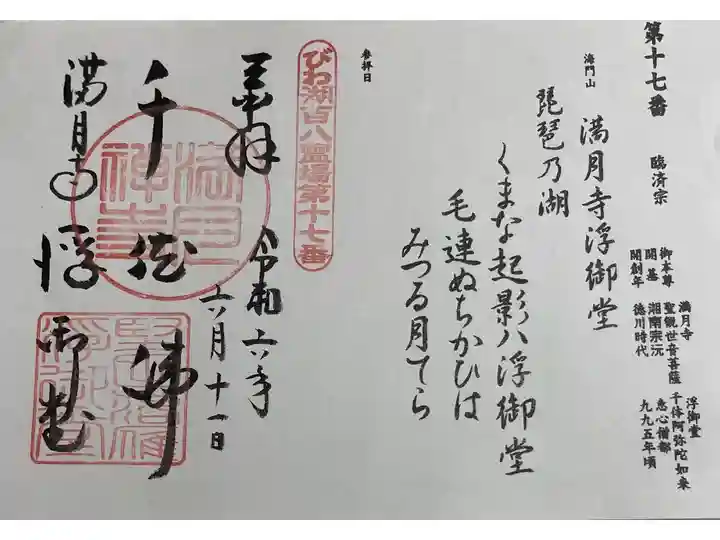 第十七番
臨済宗
満月寺
浮御堂
御本尊
聖観世音菩薩
千体阿弥陀如来
開基
湘南宗沅
恵心僧都
開創年
徳川時代
九九五年頃
海門山
満月寺浮御堂
琵琶乃湖
くまな起影八浮御堂
毛連ぬちかひは
みつる月てら
参拝日
びわ湖百八霊場第十七番
奉拝
令和六年
六月十一日
千体佛
満月寺浮御堂